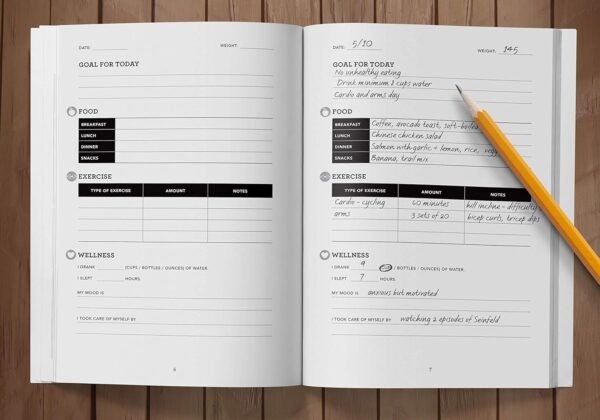 DATE:
WEIGHT:
GOAL FOR TODAY
FOOD
BREAKFAST
LUNCH
DINNER
SNACKS
EXERCISE
TYPE OF EXERCISE AMOUNT NOTES
WELLNESS
I DRANK (CUPS / BOTTLES / OUNCES) OF WATER.
I SLEPT HOURS.
MY MOOD IS
I TOOK CARE OF MYSELF BY
6
DATE: 5/10
WEIGHT: 145
GOAL FOR TODAY
No unhealthy eating
Drink minimum 8 cups water
Cardo and arms day
FOOD
BREAKFAST Coffee, avocado toast, soft-boiled
LUNCH Chinese chicken salad
DINNER Salmon with garlic + lemon, rice,
SNACKS Banana, trail mix
EXERCISE
TYPE OF EXERCISE AMOUNT NOTES
Cardo - cycling 60 minutes hill incline - difficulty
arms 3 sets of 20 bicep curls, tricep dips
WELLNESS
I DRANK 9 / BOTTLES / OUNCES) OF WATER.
I SLEPT 7 HOURS.
MY MOOD IS anxious but motivated
I TOOK CARE OF MYSELF BY watching 2 episodes of Seinfeld
7